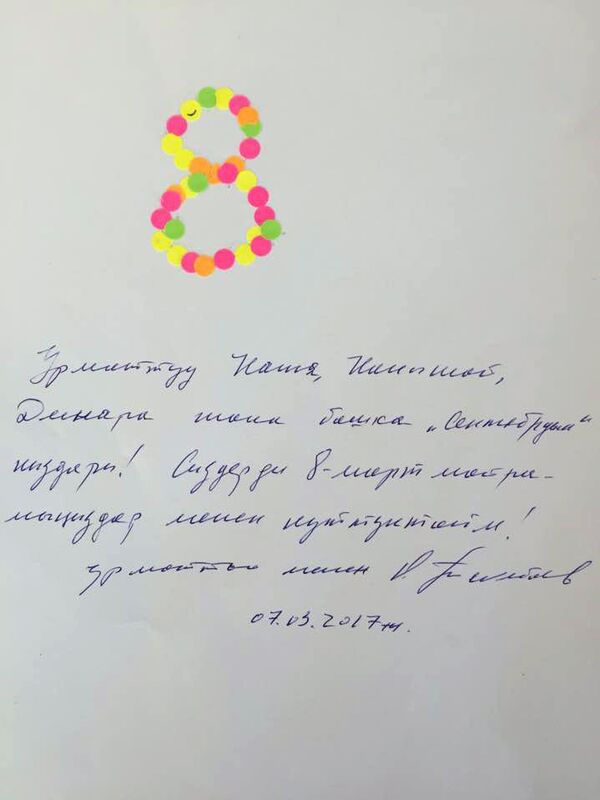 8
Урматтуу Катя, Канышай,
Динара жана башка „Сентябрдын"
кыздары! Сиздерди 8-март майра-
мыңыздар менен куттуктайм!
урматтоо менен
07.03.2017ж.